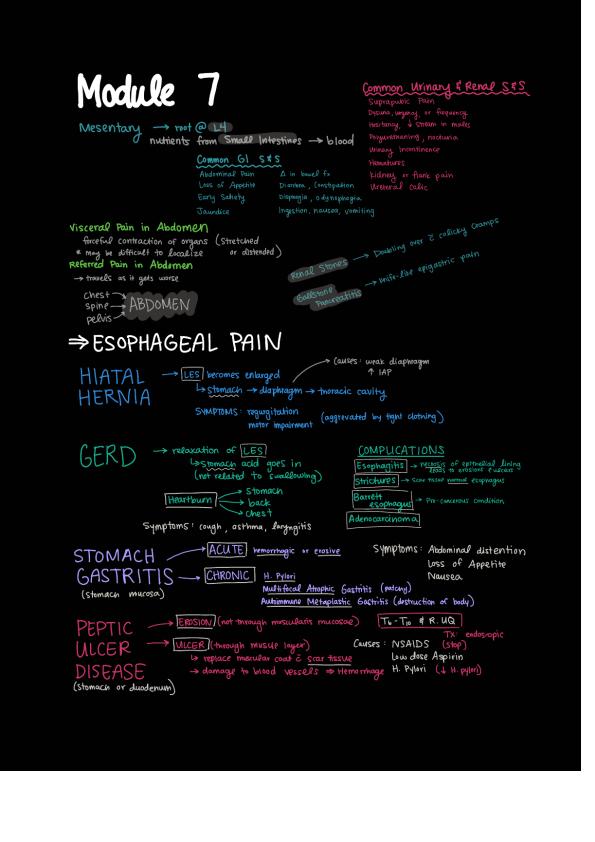 Module 7
Mesentary → root @ L4
nutrients from Small Intestines → blood
Common Urinary & Renal S&S
Suprapubic Pain
Dysuria, urgency or frequency
Hesitancy, ↓ stream in males
Polyuria, nocturia
Urinary Incontinence
Hematuria
Kidney or flank pain
Ureteral colic
Common GI S&S
Abdominal Pain
Loss of Appetite
Early Satiety
Jaundice
Δ in bowel fx
Diarrhea, Constipation
Dysphagia, odynophagia
Ingestion, nausea, vomiting
Visceral Pain in Abdomen
forceful contraction of organs (stretched or distended)
* may be difficult to localize
Referred Pain in Abdomen
→ travels as it gets worse
chest
spine → ABDOMEN
pelvis
Renal Stones → Doubling over c̄ colicky cramps
Gallstone Pancreatitis → knife-like epigastric pain
⇒ ESOPHAGEAL PAIN
HIATAL HERNIA → LES becomes enlarged
↳ stomach → diaphragm → thoracic cavity
causes: weak diaphragm
↑ IAP
SYMPTOMS: regurgitation
motor impairment (aggrevated by tight clothing)
GERD → relaxation of LES
↳ stomach acid goes in
(not related to swallowing)
Heartburn → stomach
→ back
→ chest
Symptoms: cough, asthma, laryngitis
COMPLICATIONS
Esophagitis → necrosis of epithelial lining
leads to erosions & ulcers
Strictures → scar tissue esophagus
Barrett esophagus → Pre-cancerous condition
Adenocarcinoma
STOMACH GASTRITIS
(stomach mucosa)
→ ACUTE hemorrhagic or erosive
→ CHRONIC H. Pylori
Multifocal Atrophic Gastritis (patchy)
Autoimmune Metaplastic Gastritis (destruction of body)
Symptoms: Abdominal distention
Loss of Appetite
Nausea
PEPTIC ULCER DISEASE
(stomach or duodenum)
→ EROSION (not through muscularis mucosae)
→ ULCER (through muscle layer)
↳ replace muscular coat c̄ scar tissue
→ damage to blood vessels ⇒ Hemorrhage
T6-T10 & R. UQ
TX: endoscopic
Causes: NSAIDS (stop)
Low dose Aspirin
H. Pylori (↓ H. pylori)